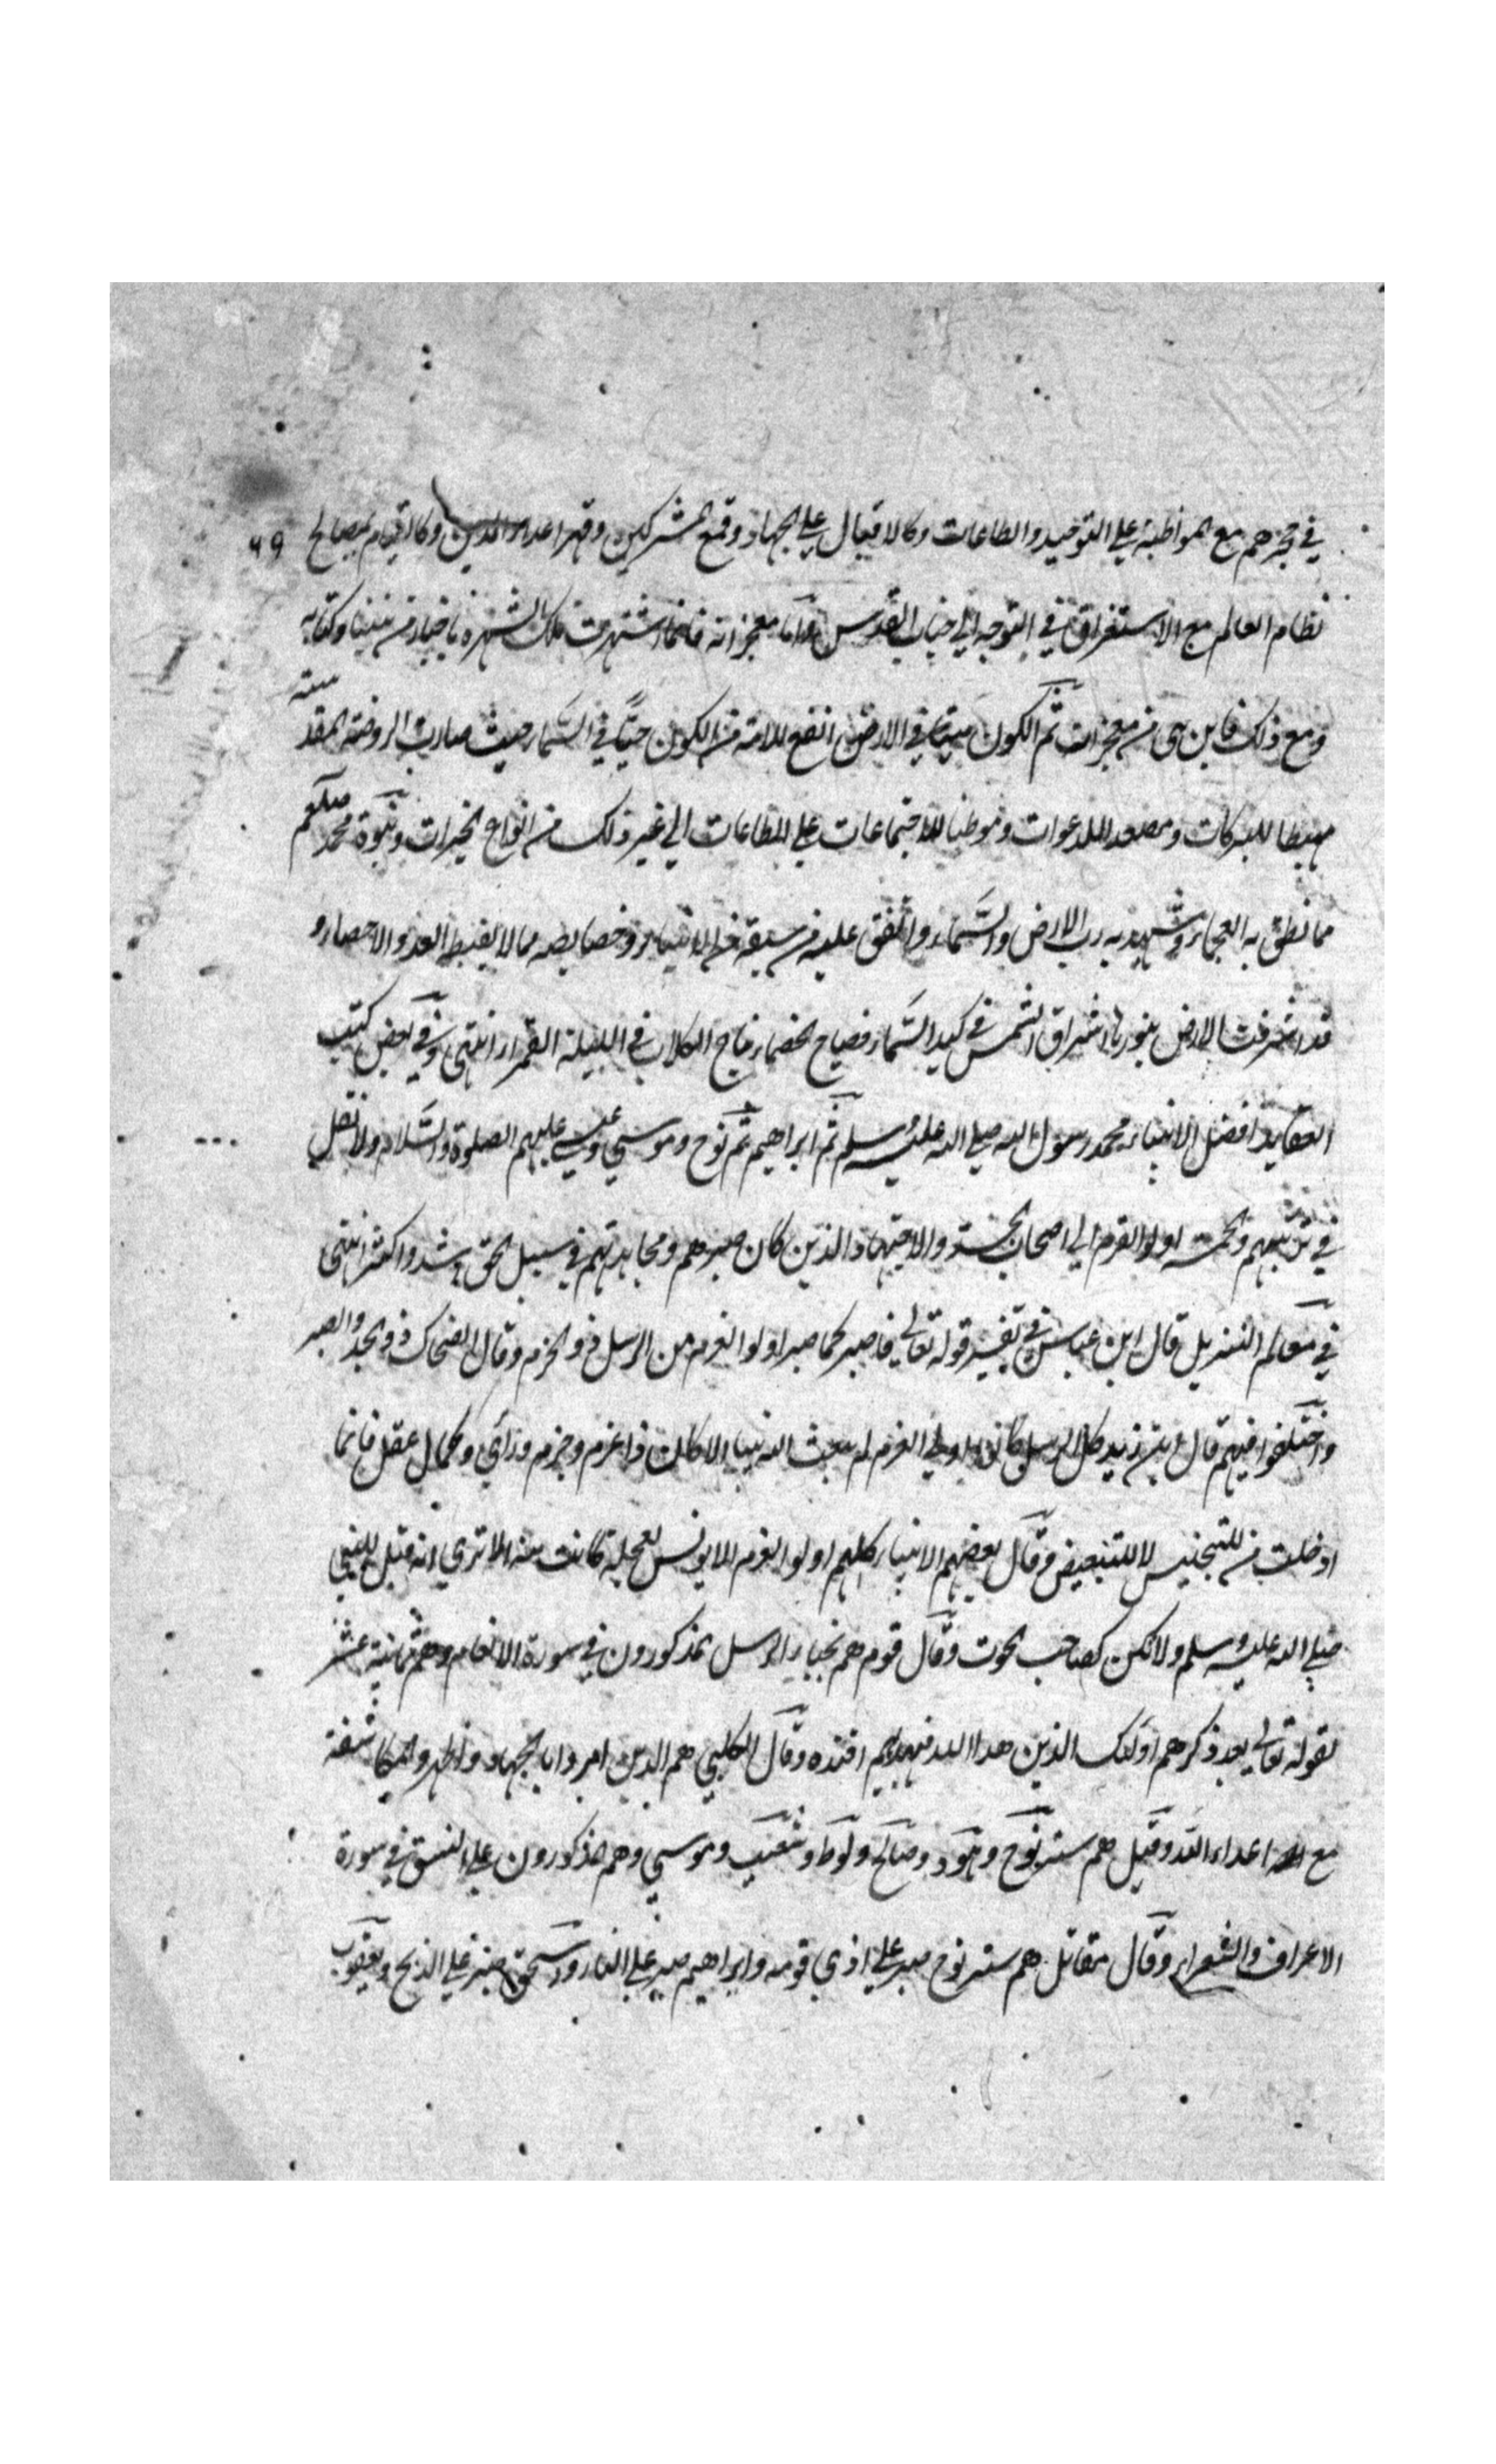 في حجرهم مع المواظبة على التوحيد والطاعات وكالاقبال على الجهاد وقمع المشركين وقهر اعداء الدين وكالقيام بمصالح ٦٩
نظام العالم مع الاستغراق في التوجه الى جناب القدس واما معجزاته فانما اشتهرت تلك الشهرة باخبار من نبينا وكتابه
ومع ذلك فاين هي من معجزاته ثم الكون ميتا في الارض انفع للامة من الكون حيا في السماء حيث صارت الروضة المقدسة
مهبطا للبركات ومصعدا للدعوات وموطنا للاجتماعات على الطاعات الى غير ذلك من انواع الخيرات ونبوة محمد صلعم
مما نطق به العجماء وشهد به رب الارض والسماء واتفق عليه من سبقه من الانبياء وخصايصه مما لا يضبط العد والاحصاء و
قد اشرقت الارض بنورها اشراق الشمس في كبد السماء فصياح الخصماء نباح الكلاب في الليلة القمراء انتهى وفي بعض كتب
العقايد افضل الانبياء محمد رسول الله صلى الله عليه وسلم ثم ابراهيم ثم نوح وموسى وعيسى عليهم الصلوة والسلام ولا نقل
في ترتيبهم والخمسة اولوا العزم اي اصحاب الجد والاجتهاد الذين كان صبرهم ومجاهدتهم في سبيل الحق اشد واكثر انتهى
في معالم التنزيل قال ابن عباس في تفسير قوله تعالى فاصبر كما صبر اولوا العزم من الرسل ذو الحزم وقال الضحاك ذو الجد والصبر
واختلفوا فيهم قال ابن زيد كل الرسل كانوا اولي العزم لم يبعث الله نبيا الا كان ذا عزم وحزم وراي وكمال عقل فانما
ادخلت من للتجنيس لا للتبعيض وقال بعضهم الانبياء كلهم اولوا العزم الا يونس لعجلة كانت منه الا ترى انه قيل للنبي
صلى الله عليه وسلم ولا تكن كصاحب الحوت وقال قوم هم نجباء الرسل المذكورون في سورة الانعام وهم ثمانية عشر
لقوله تعالى بعد ذكرهم اولئك الذين هدا الله فبهديهم اقتده وقال الكلبي هم الذين امروا بالجهاد واظهروا المكاشفة
مع اعداء الله وقيل هم ستة نوح وهود وصالح ولوط وشعيب وموسى وهم مذكورون على النسق في سورة
الاعراف والشعراء وقال مقاتل هم ستة نوح صبر على اذى قومه وابراهيم صبر على النار واسحق صبر على الذبح ويعقوب